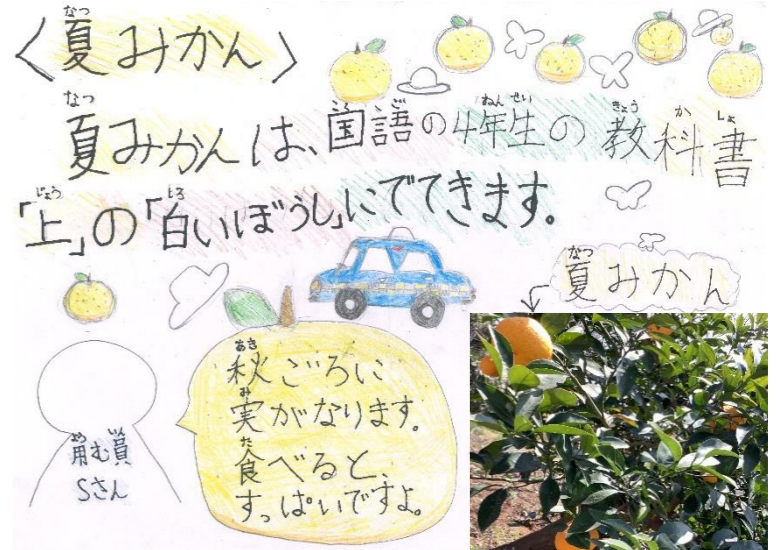 〈夏みかん〉
夏みかんは、国語の4年生の教科書
「上」の「白いぼうし」にでてきます。
夏みかん
秋ごろに
実がなります。
食べると、
すっぱいですよ。
用む員
Sさん